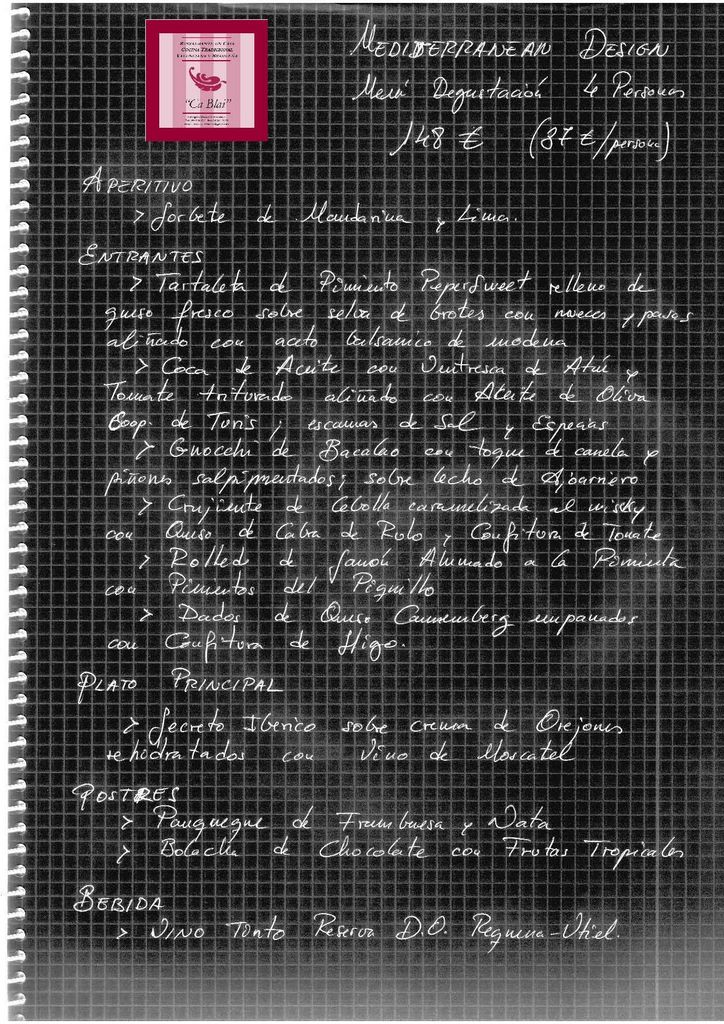 RESTAURANTE UN CASA
COCINA TRADICIONAL
"Ca Blai"
MEDITERRANEAN DESIGN
Menú Degustación 4 Personas
148 € (37 €/persona)
APERITIVO
> Sorbete de Mandarina y Lima.
ENTRANTES
> Tartaleta de Pimiento PeperSweet relleno de
queso fresco sobre selva de brotes con nueces y pasas
aliñado con aceto balsamico de modena
> Coca de Aceite con Ventresca de Atún y
Tomate triturado aliñado con Aceite de Oliva
Coop. de Turís; escamas de Sal y Especias
> Gnocchi de Bacalao con toque de canela y
piñones salpimentados; sobre lecho de Ajoarriero
> Crujiente de Cebolla caramelizada al wisky
con Queso de Cabra de Rulo y Confitura de Tomate
> Rolledo de Jamón Ahumado a la Pimienta
con Pimientos del Piquillo
> Dados de Queso Cammemberg empanados
con Confitura de Higo.
PLATO PRINCIPAL
> Secreto Iberico sobre crema de Orejones
rehidratados con Vino de Moscatel
POSTRES
> Panqueque de Frambuesa y Nata
> Bolacha de Chocolate con Frutas Tropicales
BEBIDA
> VINO Tinto Reserva D.O. Requena-Utiel.